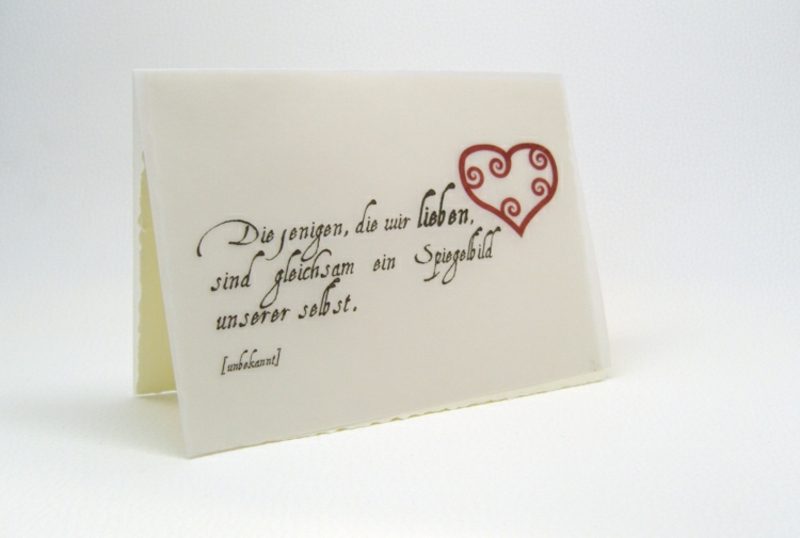 Die jenigen, die wir lieben,
sind gleichsam ein Spiegelbild
unserer selbst.
[unbekannt]